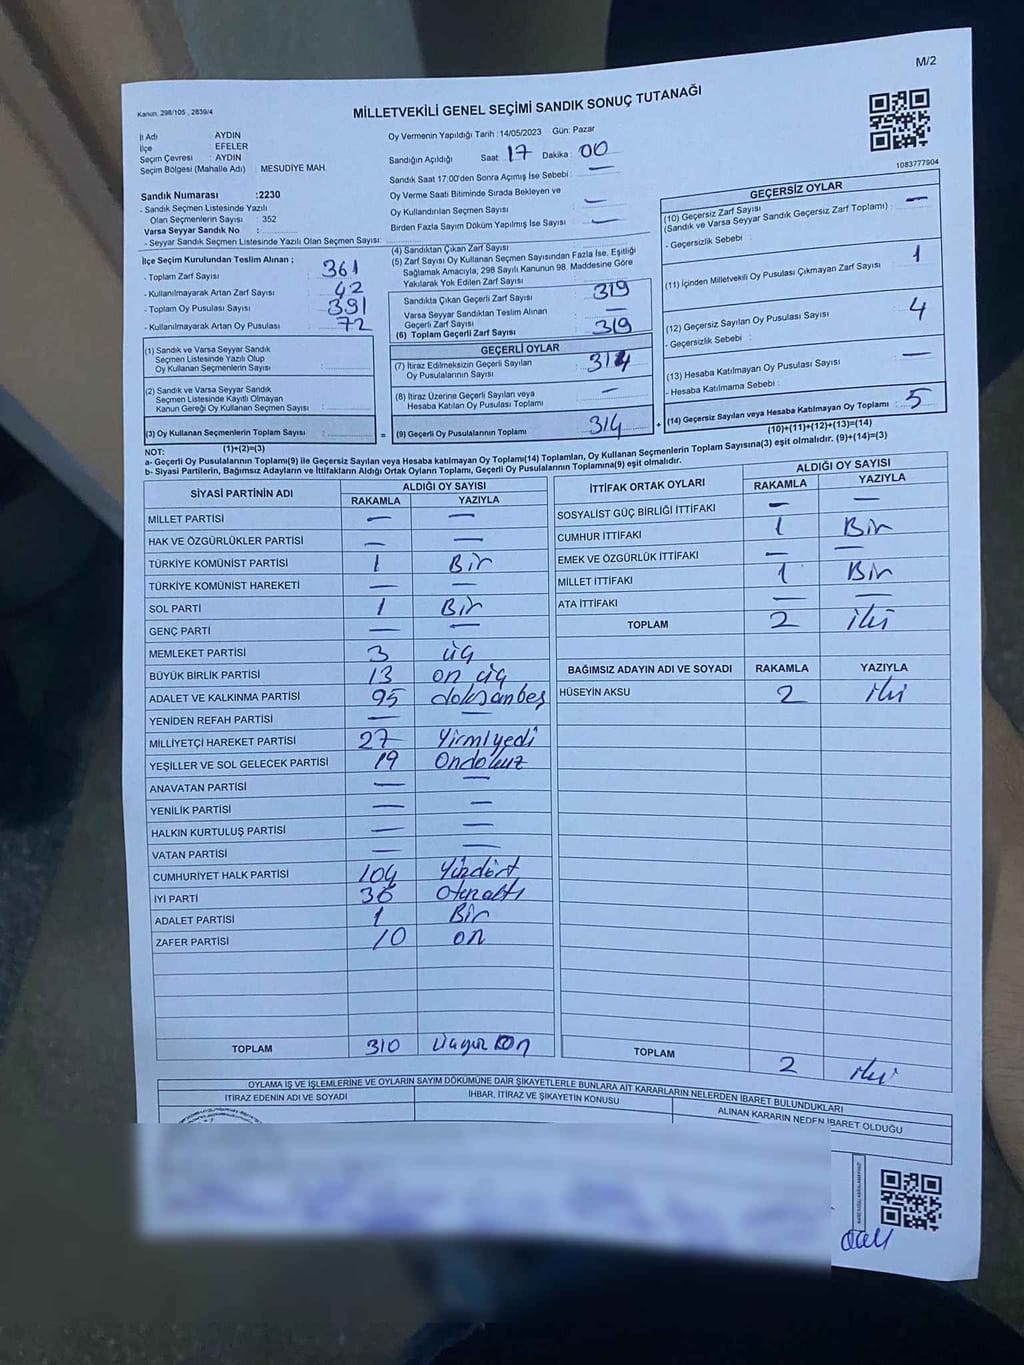 M/2
Kanun, 298/105 , 2839/4
MİLLETVEKİLİ GENEL SEÇİMİ SANDIK SONUÇ TUTANAĞI
1083777904
İl Adı : AYDIN
İlçe : EFELER
Seçim Çevresi : AYDIN
Seçim Bölgesi (Mahalle Adı) : MESUDİYE MAH
Sandık Numarası :2230
- Sandık Seçmen Listesinde Yazılı
Olan Seçmenlerin Sayısı : 352
Varsa Seyyar Sandık No :
- Seyyar Sandık Seçmen Listesinde Yazılı Olan Seçmen Sayısı:
İlçe Seçim Kurulundan Teslim Alınan ;
- Toplam Zarf Sayısı : 361
- Kullanılmayarak Artan Zarf Sayısı : 42
- Toplam Oy Pusulası Sayısı : 391
- Kullanılmayarak Artan Oy Pusulası : 72
(1) Sandık ve Varsa Seyyar Sandık
Seçmen Listesinde Yazılı Olup
Oy Kullanan Seçmenlerin Sayısı :
(2) Sandık ve Varsa Seyyar Sandık
Seçmen Listesinde Kayıtlı Olmayan
Kanun Gereği Oy Kullanan Seçmen Sayısı :
(3) Oy Kullanan Seçmenlerin Toplam Sayısı :
Oy Vermenin Yapıldığı Tarih :14/05/2023 Gün: Pazar
Sandığın Açıldığı Saat: 17 Dakika : 00
Sandık Saat 17:00'den Sonra Açımış İse Sebebi : —
Oy Verme Saati Bitiminde Sırada Bekleyen ve
Oy Kullandırılan Seçmen Sayısı : —
Birden Fazla Sayım Döküm Yapılmış İse Sayısı : —
(4) Sandıktan Çıkan Zarf Sayısı :
(5) Zarf Sayısı Oy Kullanan Seçmen Sayısından Fazla İse, Eşitliği
Sağlamak Amacıyla, 298 Sayılı Kanunun 98. Maddesine Göre
Yakılarak Yok Edilen Zarf Sayısı :
Sandıkta Çıkan Geçerli Zarf Sayısı : 319
Varsa Seyyar Sandıktan Teslim Alınan
Geçerli Zarf Sayısı : —
(6) Toplam Geçerli Zarf Sayısı : 319
GEÇERLİ OYLAR
(7) İtiraz Edilmeksizin Geçerli Sayılan
Oy Pusulalarının Sayısı : 314
(8) İtiraz Üzerine Geçerli Sayılan veya
Hesaba Katılan Oy Pusulası Toplamı : —
= (9) Geçerli Oy Pusulalarının Toplamı : 314 +
GEÇERSİZ OYLAR
(10) Geçersiz Zarf Sayısı
(Sandık ve Varsa Seyyar Sandık Geçersiz Zarf Toplamı) : —
- Geçersizlik Sebebi :
(11) İçinden Milletvekili Oy Pusulası Çıkmayan Zarf Sayısı : 1
(12) Geçersiz Sayılan Oy Pusulası Sayısı : 4
- Geçersizlik Sebebi :
(13) Hesaba Katılmayan Oy Pusulası Sayısı : —
- Hesaba Katılmama Sebebi :
(14) Geçersiz Sayılan veya Hesaba Katılmayan Oy Toplamı : 5
(10)+(11)+(12)+(13)=(14)
NOT: (1)+(2)=(3)
a- Geçerli Oy Pusulalarının Toplamı(9) ile Geçersiz Sayılan veya Hesaba katılmayan Oy Toplamı(14) Toplamları, Oy Kullanan Seçmenlerin Toplam Sayısına(3) eşit olmalıdır. (9)+(14)=(3)
b- Siyasi Partilerin, Bağımsız Adayların ve İttifakların Aldığı Ortak Oyların Toplamı, Geçerli Oy Pusulalarının Toplamına(9) eşit olmalıdır.
SİYASİ PARTİNİN ADI ALDIĞI OY SAYISI
RAKAMLA YAZIYLA
MİLLET PARTİSİ — —
HAK VE ÖZGÜRLÜKLER PARTİSİ — —
TÜRKİYE KOMÜNİST PARTİSİ 1 Bir
TÜRKİYE KOMÜNİST HAREKETİ — —
SOL PARTİ 1 Bir
GENÇ PARTİ — —
MEMLEKET PARTİSİ 3 üç
BÜYÜK BİRLİK PARTİSİ 13 on üç
ADALET VE KALKINMA PARTİSİ 95 doksanbeş
YENİDEN REFAH PARTİSİ — —
MİLLİYETÇİ HAREKET PARTİSİ 27 Yirmiyedi
YEŞİLLER VE SOL GELECEK PARTİSİ 19 Ondokuz
ANAVATAN PARTİSİ — —
YENİLİK PARTİSİ — —
HALKIN KURTULUŞ PARTİSİ — —
VATAN PARTİSİ — —
CUMHURİYET HALK PARTİSİ 104 Yüzdört
İYİ PARTİ 36 Otuzaltı
ADALET PARTİSİ 1 Bir
ZAFER PARTİSİ 10 on
TOPLAM 310 üçyüz on
İTTİFAK ORTAK OYLARI ALDIĞI OY SAYISI
RAKAMLA YAZIYLA
SOSYALİST GÜÇ BİRLİĞİ İTTİFAKI — —
CUMHUR İTTİFAKI 1 Bir
EMEK VE ÖZGÜRLÜK İTTİFAKI — —
MİLLET İTTİFAKI 1 Bir
ATA İTTİFAKI — —
TOPLAM 2 iki
BAĞIMSIZ ADAYIN ADI VE SOYADI RAKAMLA YAZIYLA
HÜSEYİN AKSU 2 iki
TOPLAM 2 iki
OYLAMA İŞ VE İŞLEMLERİNE VE OYLARIN SAYIM DÖKÜMÜNE DAİR ŞİKAYETLERLE BUNLARA AİT KARARLARIN NELERDEN İBARET BULUNDUKLARI
İTİRAZ EDENİN ADI VE SOYADI İHBAR, İTİRAZ VE ŞİKAYETİN KONUSU ALINAN KARARIN NEDEN İBARET OLDUĞU